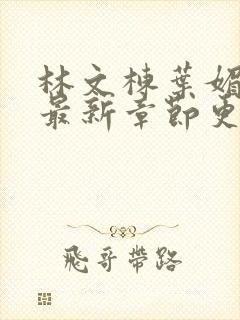 林文棟葉媚
最新章節更
飛哥帶路